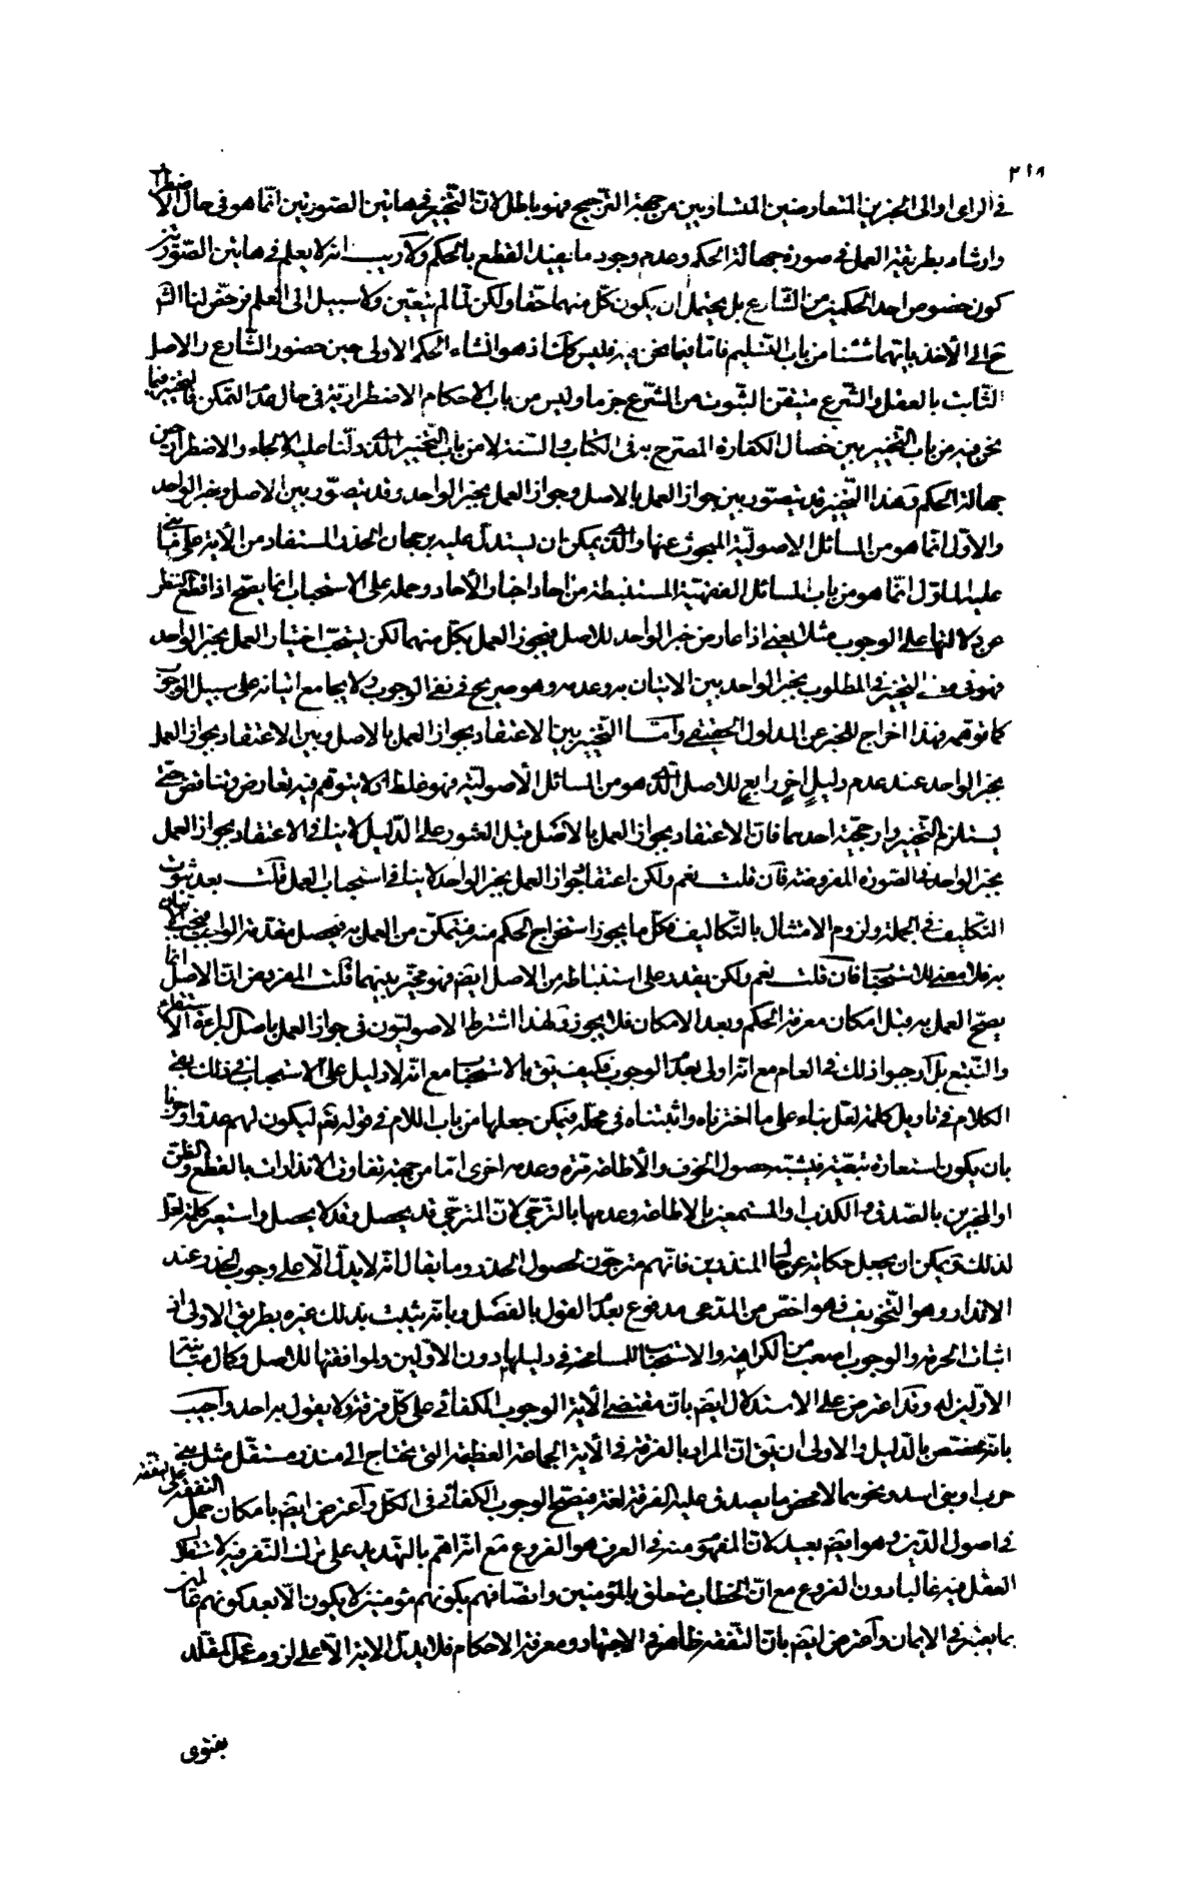 ٢١٨
في الرأي او الى الخبرين المتعارضين المتساويين من جهة الترجيح فهو باطل لانّ التّخيير في هاتين الصّورتين انّما هو في حال الاضطرار
وارشاد بطريقة العمل في صورة جهالة الحكم وعدم وجود ما يفيد القطع بالحكم ولا ريب انه لا يعلم في هاتين الصّورتين
كون خصوص احد الحكمين من الشّارع بل يحتمل ان يكون كلّ منهما حقّا ولكن لمّا لم يتعيّن ولا سبيل الى العلم فرخّص لنا الشّارع
ح الى الأخذ بايّهما شئنا من باب التّسليم فامّا فيما نحن فيه فليس كك اذ هو انشاء الحكم الاولى حين حضور الشّارع والاصل
الثّابت بالعقل والشّرع متيقّن الثّبوت من الشّرع جزما وليس من باب الاحكام الاضطراريّة في حال عدم التمكن فالتخيير فيما
نحن فيه من باب التّخيير بين خصال الكفّارة المصرّح به في الكتاب والسّنة لا من باب التّخيير الّذي دلّنا عليه الالجاء والاضطرار حين
جهالة الحكم وهذا التّخيير قد يتصوّر بين جواز العمل بالاصل وجواز العمل بخبر الواحد وقد يتصوّر بين الاصل وخبر الواحد
والاوّل انّما هو من المسائل الاصوليّة المبحوث عنها والّذي يمكن ان يستدلّ عليه برجحان الحذر المستفاد من الأية على ما بنى
عليه المأوّل انّما هو من باب المسائل الفقهيّة المستنبطة من احاد اخبار الأحاد وحمله على الاستحباب انما يصحّ اذا قطع النّظر
عن دلالتها على الوجوب مثلا يعني اذا عارض خبر الواحد للاصل فيجوز العمل بكلّ منهما لكن يستحبّ اختيار العمل بخبر الواحد
فهو في معنى التّخيير في المطلوب بخبر الواحد بين الاتيان به وعدمه وهو صريح في نفي الوجوب ولا يجامع اتيانه على سبيل الوجوب
كما توهّمه فهذا اخراج للخبر عن المدلول الحقيقي وامّا التّخيير بين الاعتقاد بجواز العمل بالاصل وبين الاعتقاد بجواز العمل
بخبر الواحد عند عدم دليل اخر رابع للاصل الّذي هو من المسائل الأصوليّة فهو غلط اذ لا يتوهّم فيه تعارض وتناقض حتّى
يستلزم التّخيير وارجحيّة احدهما فانّ الاعتقاد بجواز العمل بالاصل قبل العثور على الدّليل لا ينافي الاعتقاد بجواز العمل
بخبر الواحد في الصّورة المفروضة فان قلت نعم ولكن اعتقاد جواز العمل بخبر الواحد لا ينافي استحباب العمل قلت بعد ثبوت
التّكليف في الجملة ولزوم الامتثال بالتّكاليف فكلّ ما يجوز استخراج الحكم منه فيتمكّن من العمل به فيحصل مقدّمة الواجب فيجب الاتيان
به فلا معنى للاستحباب فان قلت نعم ولكن يقدر على استنباطه من الاصل ايضا فهو مخيّر بينهما قلت المفروض انّ الاصل انّما
يصحّ العمل به قبل امكان معرفة الحكم وبعد الامكان فلا يجوز ولهذا اشترط الاصوليّون في جواز العمل باصل البراءة الاستقصاء
والتّتبّع بل اوجبوا ذلك في العام مع انّه اولى بعدم الوجوب فكيف يق بالاستحباب مع انّه لا دليل على الاستحباب في ذلك بقي
الكلام في تأويل كلمة لعلّ بناء على ما اخترناه واثبتناه في محلّه فيمكن جعلها من باب اللام في قوله تعم ليكون لهم عدوّا وحزنا
بان يكون استعارة تبعيّة فيشبّه حصول الخوف والأطاعة مرّة وعدمه اخرى امّا من جهة تفاوت الانذارات بالقطع والظنّ
او المخبرين بالصّدق والكذب او المستمعين بالاطاعة وعدمها بالتّرجّي لانّ المترجّى قد يحصل وقد لا يحصل واستعير كلمة لعلّ
لذلك ويمكن ان يجعل حكاية عن حال المنذرين فانّهم مترجّون لحصول الحذر وما يقال انّه لا يدلّ الّا على وجوب الحذر عند
الانذار وهو التّخويف فهو اخصّ من المدّعى مدفوع بعدم القول بالفصل وبانّه يثبت بذلك غيره بطريق الاولى اذ
اثبات الحرمة والوجوب اصعب من الكراهة والاستحباب للمسامحة في دليلهما دون الاوّلين ولموافقتها للاصل وكمال مباينة
الاوّلين له وقد اعترض على الاستدلال ايضا بانّ مقتضى الأية الوجوب الكفائي على كلّ فرقة ولا يقول به احد واجيب
بانّه مختصّ بالدّليل والاولى ان يق انّ المراد بالفرقة في الأية الجماعة العظيمة التي يحتاج الى منذر مستقلّ مثل بني
حرب او بني اسد ونحوهما لا محض ما يصدق عليه الفرقة لغة فيصحّ الوجوب الكفائي في الكلّ واعترض ايضا بامكان حمل التفقّه على التفقّه
في اصول الدّين وهو ايضا بعيد لانّ المفهوم منه في العرف هو الفروع مع انّ اتراهم بالتّهديد على ترك التّفرقة لاستقلال
العقل فيه غالبا دون الفروع مع انّ الخطاب متعلق بالمؤمنين واتّصافهم بكونهم مؤمنين لا يكون الّا بعد كونهم عالمين
بما يعتبر في الايمان واعترض ايضا بانّ التّفقّه ظاهر في الاجتهاد ومعرفة الاحكام فلا يدلّ الاية الّا على لزوم عمل المقلّد
بفتوى